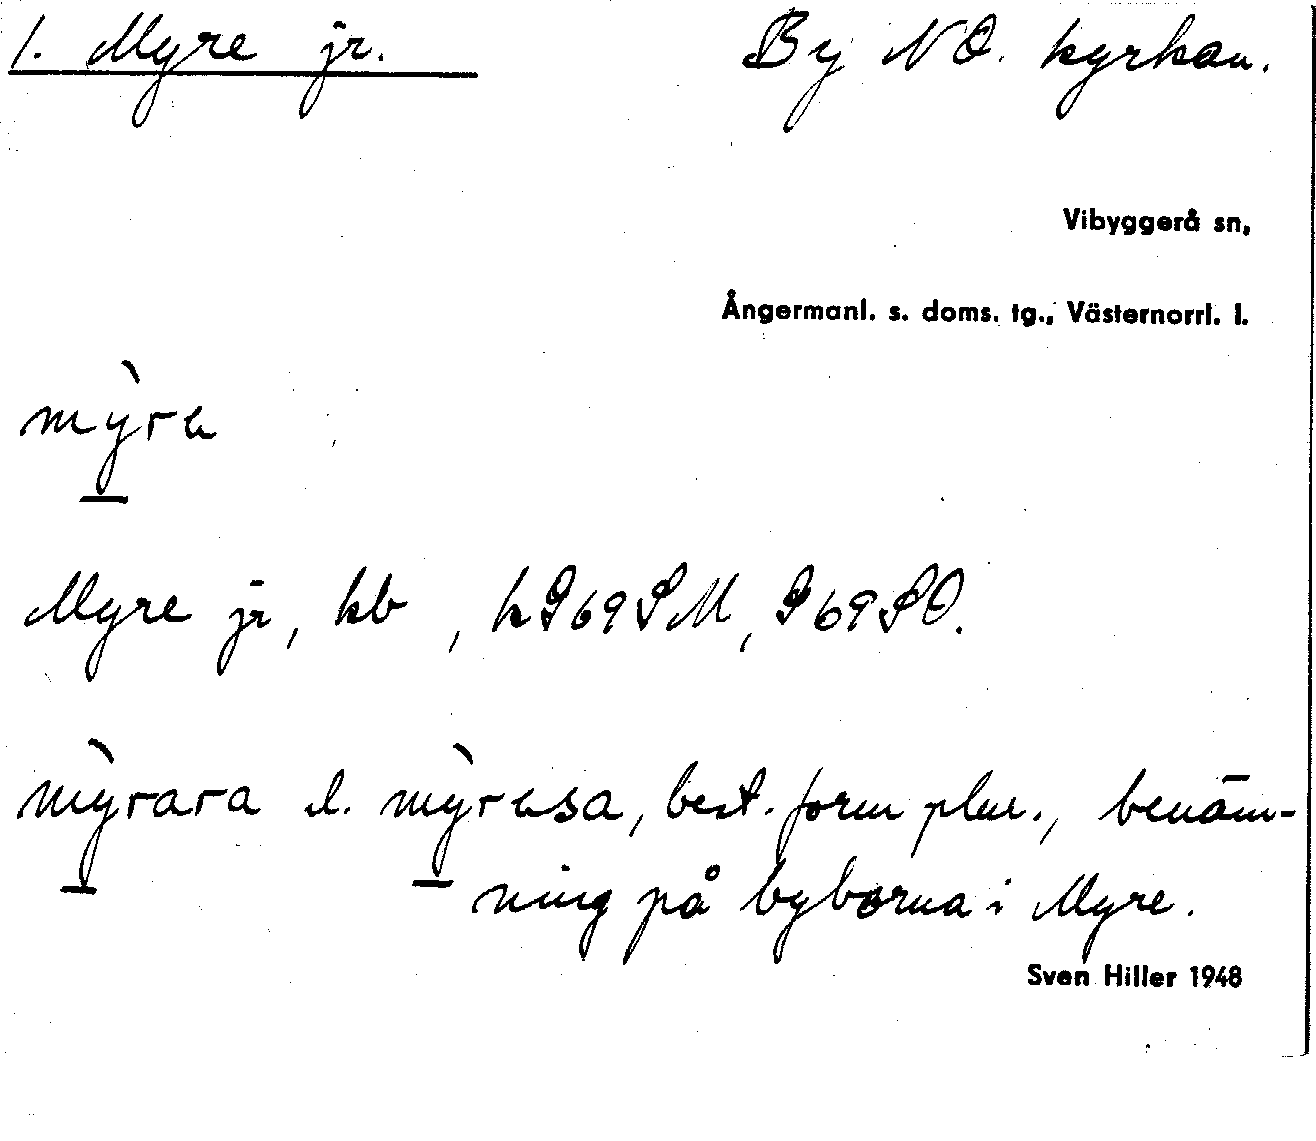 1. Myre jr. By NO. kyrkan.
Vibyggerå sn,
Ångermanl. s. doms. tg., Västernorrl. l.
mỳra
Myre jr, kb, kG69SM, G69SO.
mỳrara l. mỳrasa, best. form plur., benäm-
ning på byborna i Myre.
Sven Hiller 1948